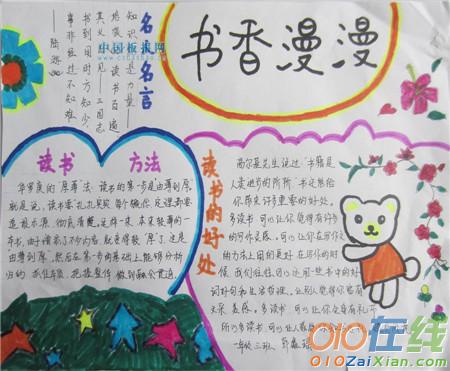 书香漫漫
名人名言
知识就是力量——
培根 读书百遍
其义自见——三国志
书到用时方知少，
事非经过不知难
——陆游
中国板报网
读书 方法
华罗庚的"厚薄"法：读书的第一步是由薄到厚。
就是说，读书要扎扎实实，每个
追根求源，彻底清楚。这样一来，本来较薄的一
本书，由于增添了不少内容，就变得较"厚"了。这是
"由薄到厚"。然后在第一步的基础上能够分析
归纳，抓住本质，把握整体，做到融会贯通。
读书的好处
西尔基先生说过"书籍是
人类进步的阶梯，书还能给
你带来许多重要的好处。
多读书，可以让你觉得有许多
的写作灵感。可以让你在写作文
的方法上用的更好。在写作的时
候，我们往往可以运用一些书中的好
词好句和生活哲理。让别人觉得你富有
文采，美感。多读书，可以让你全身有礼节。
所以多读书，可以让人
一年级三班
010在线
010ZaiXian.com